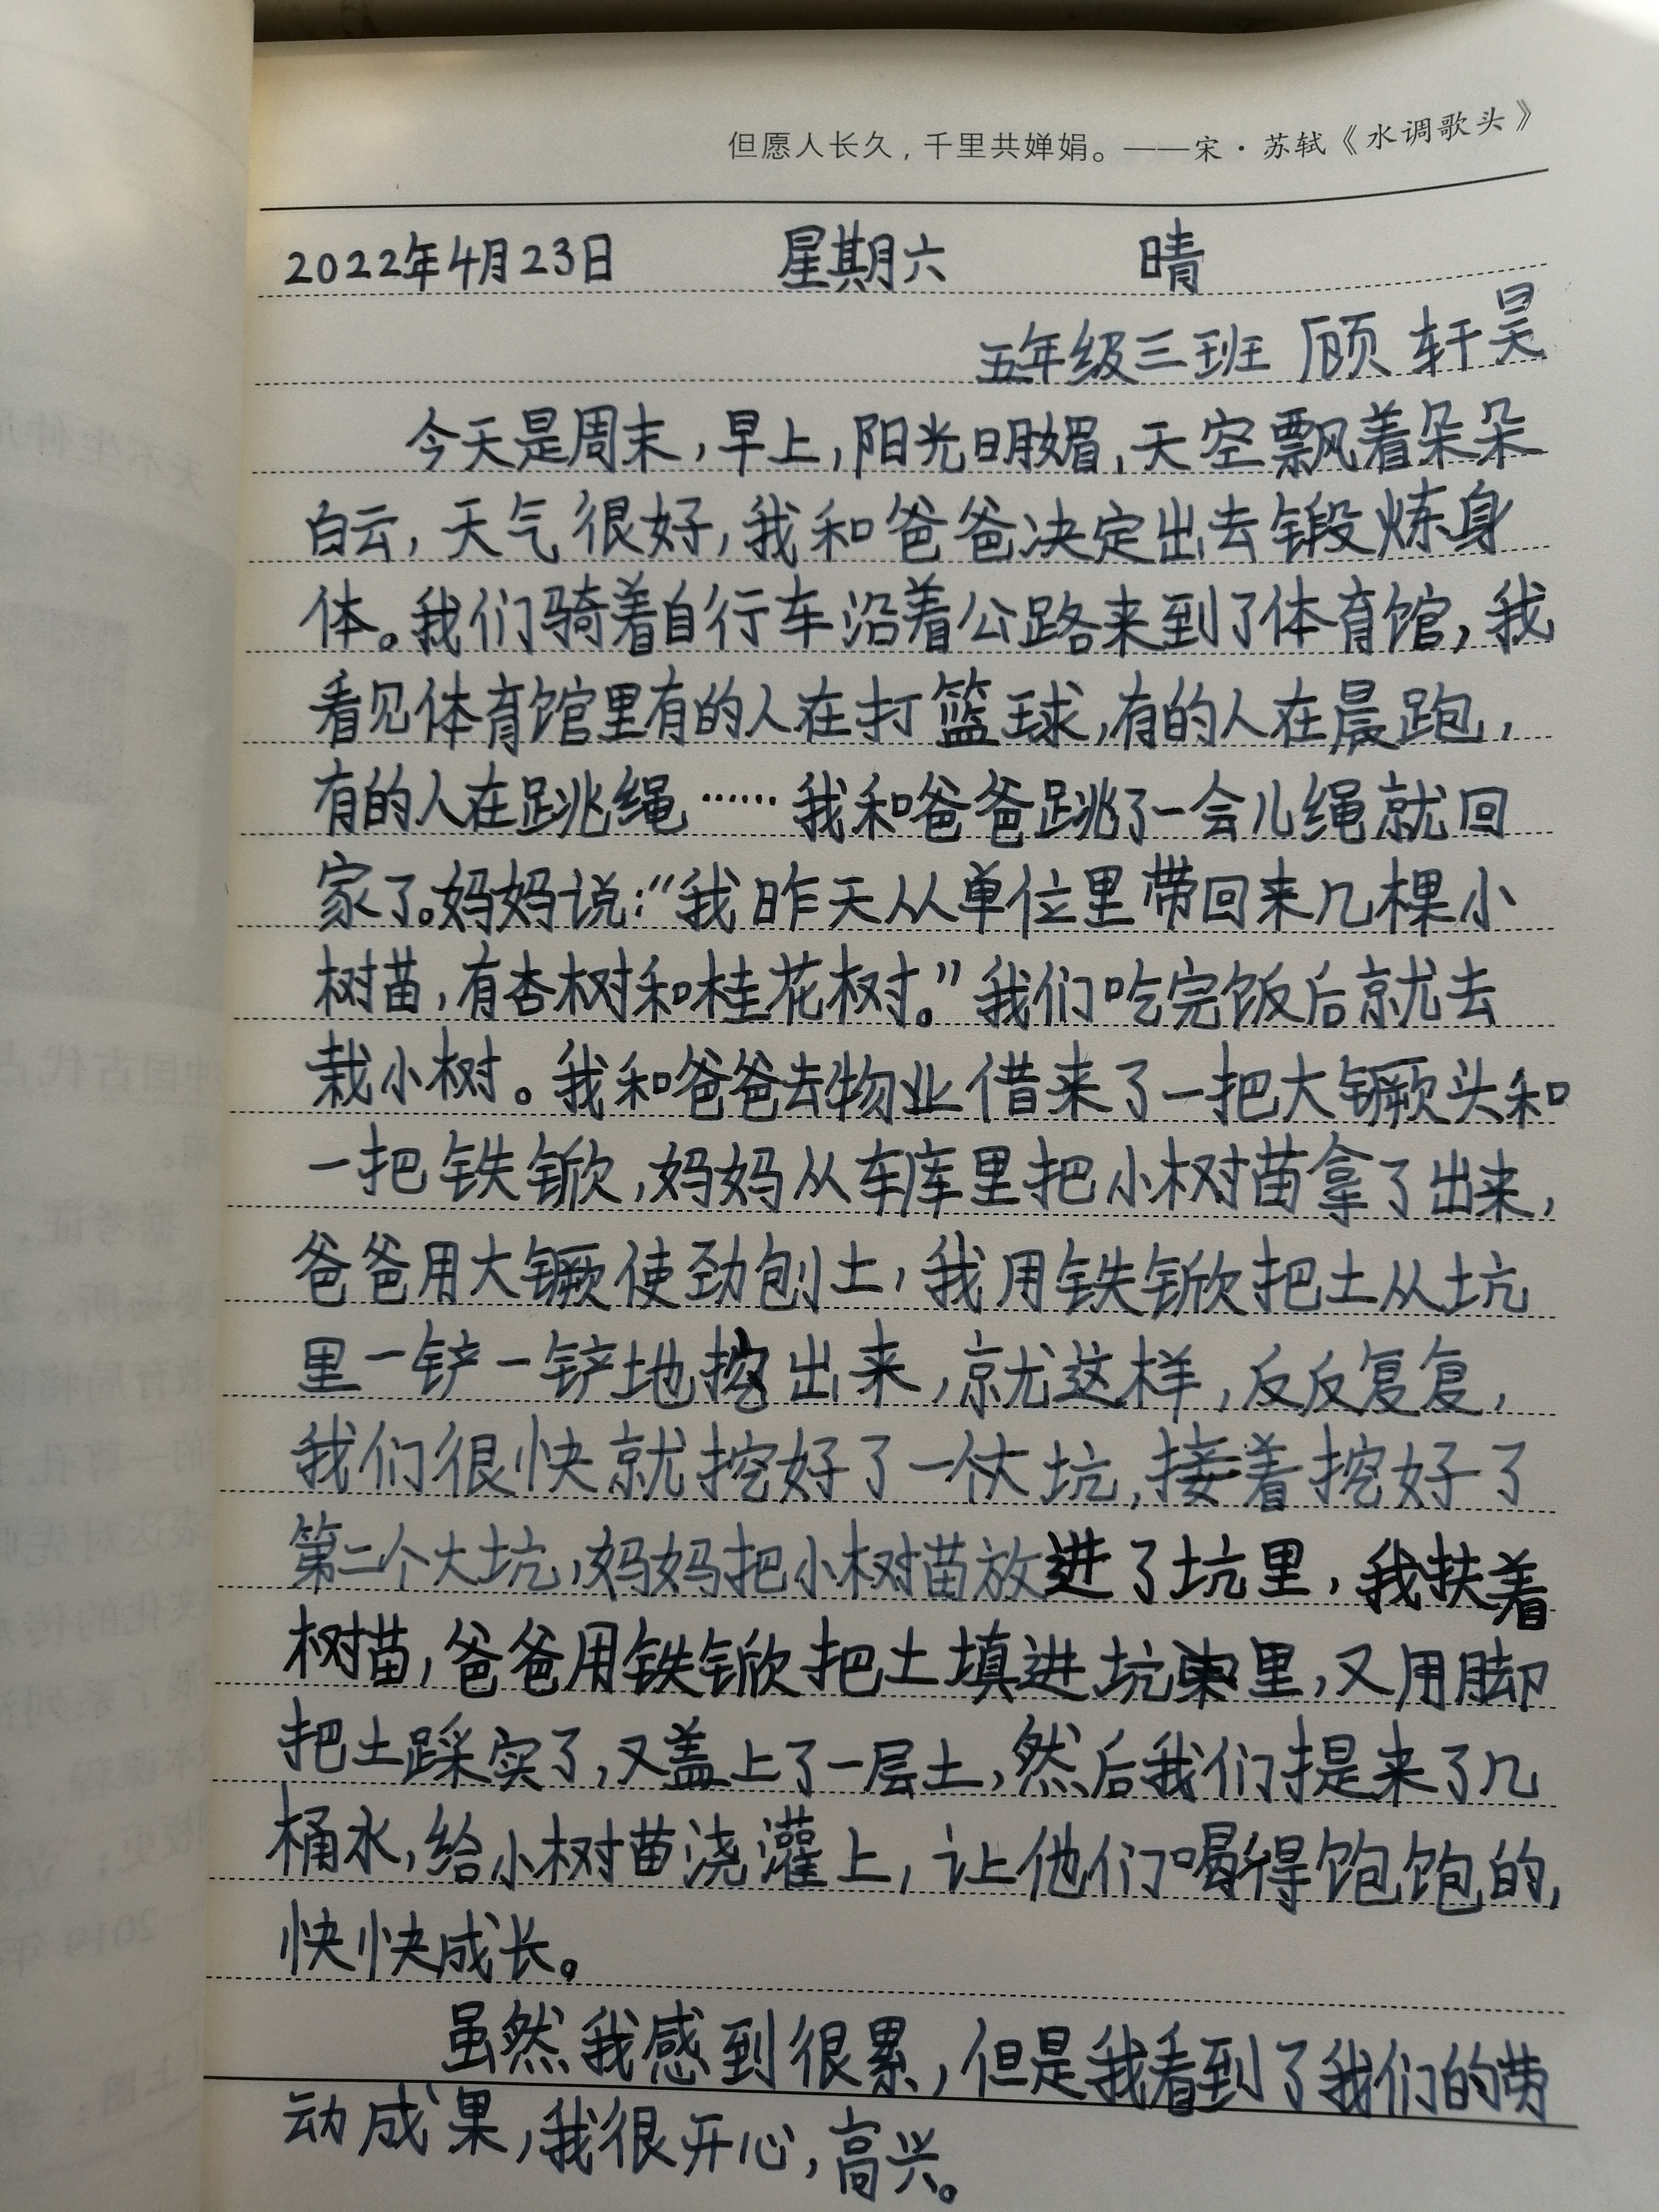 但愿人长久，千里共婵娟。——宋·苏轼《水调歌头》
2022年4月23日 星期六 晴
五年级三班 顾轩昊
今天是周末，早上，阳光明媚，天空飘着朵朵
白云，天气很好，我和爸爸决定出去锻炼身
体。我们骑着自行车沿着公路来到了体育馆，我
看见体育馆里有的人在打篮球，有的人在晨跑，
有的人在跳绳……我和爸爸跳了一会儿绳就回
家了。妈妈说：“我昨天从单位里带回来几棵小
树苗，有杏树和桂花树。”我们吃完饭后就去
栽小树。我和爸爸去物业借来了一把大镢头和
一把铁锨，妈妈从车库里把小树苗拿了出来，
爸爸用大镢使劲刨土，我用铁锨把土从坑
里一铲一铲地挖出来，就这样，反反复复，
我们很快就挖好了一个大坑，接着挖好了
第二个大坑，妈妈把小树苗放进了坑里，我扶着
树苗，爸爸用铁锨把土填进坑里，又用脚
把土踩实了，又盖上了一层土，然后我们提来了几
桶水，给小树苗浇灌上，让他们喝得饱饱的，
快快成长。
虽然我感到很累，但是我看到了我们的劳
动成果，我很开心，高兴。